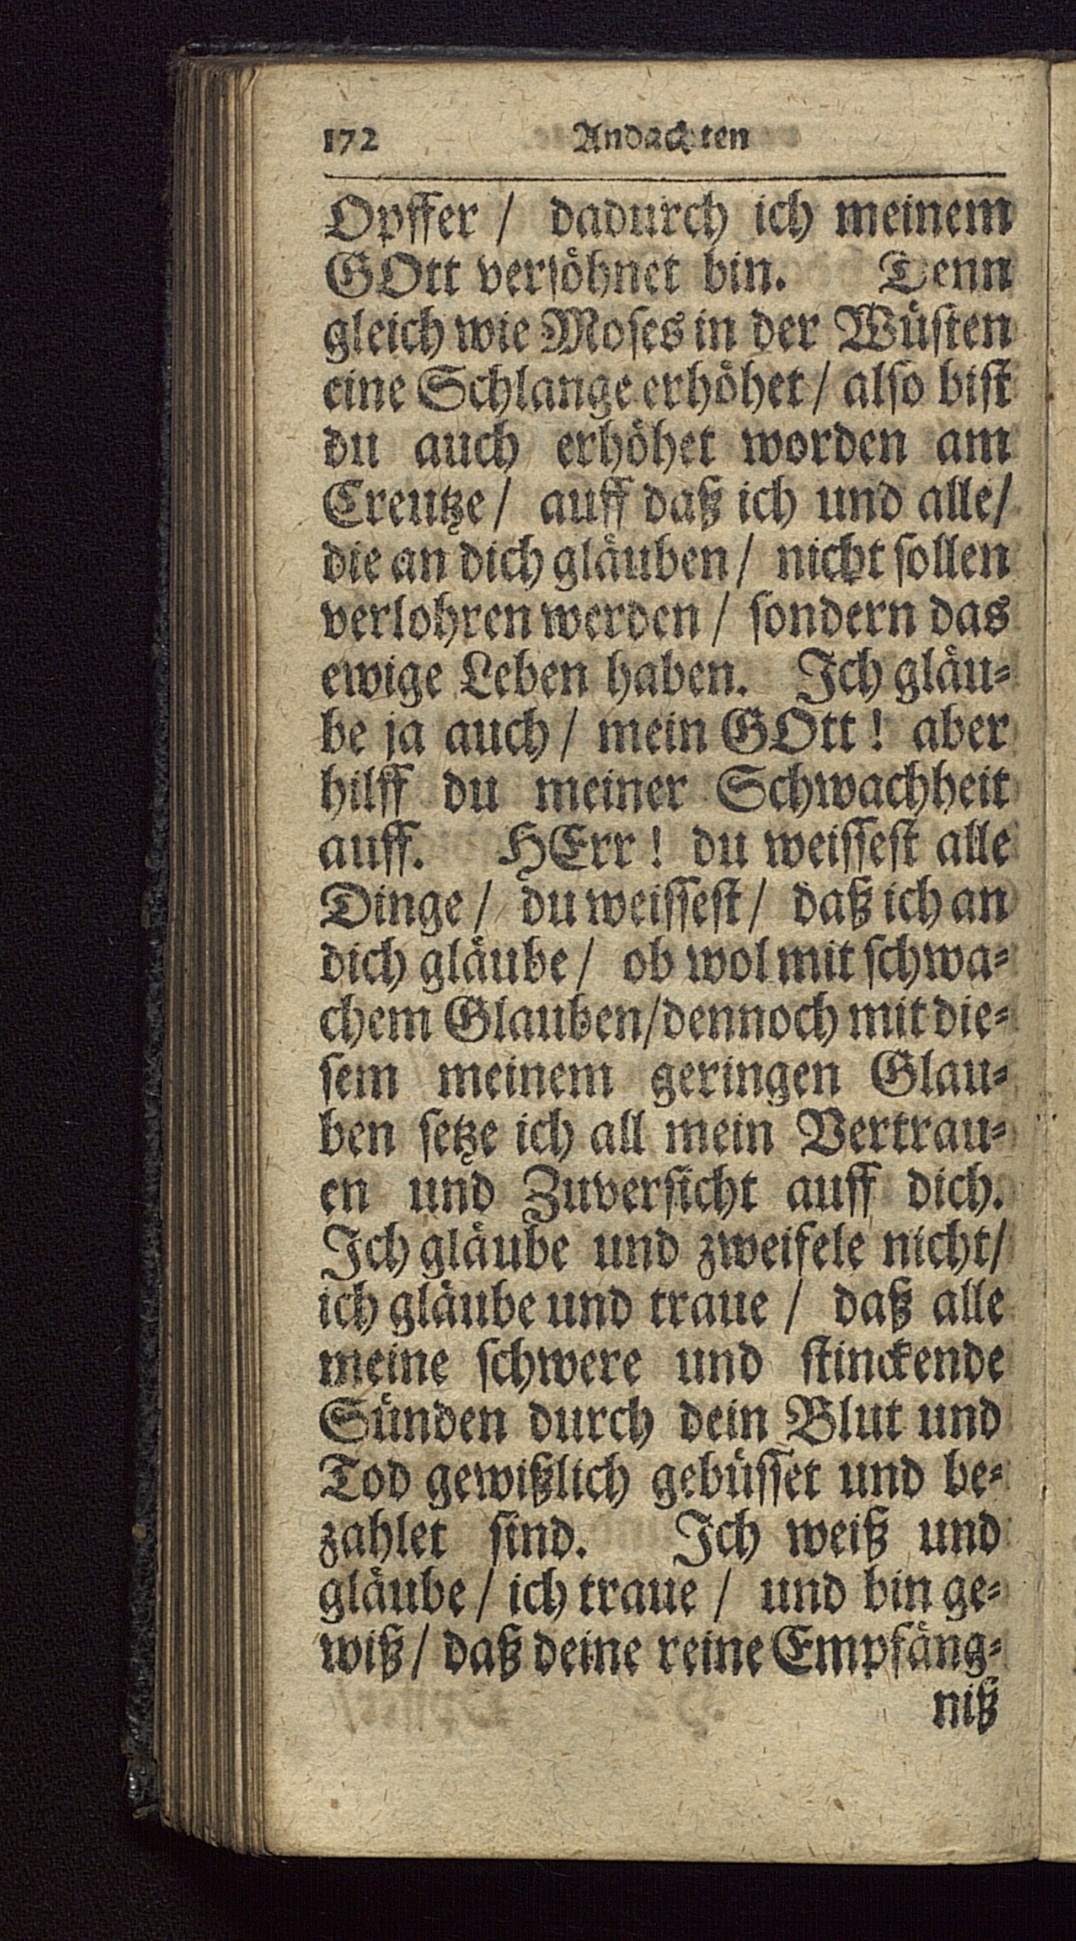 172 Andachten
Opffer / dadurch ich meinem
GOtt versöhnet bin. Denn
gleich wie Moses in der Wüsten
eine Schlange erhöhet / also bist
du auch erhöhet worden am
Creutze / auff daß ich und alle /
die an dich gläuben / nicht sollen
verlohren werden / sondern das
ewige Leben haben. Jch gläu-
be ja auch / mein GOtt ! aber
hilff du meiner Schwachheit
auff. HErr ! du weissest alle
Dinge / du weissest / daß ich an
dich gläube / ob wol mit schwa-
chem Glauben/dennoch mit die-
sem meinem geringen Glau-
ben setze ich all mein Vertrau-
en und Zuversicht auff dich.
Jch gläube und zweifele nicht/
ich gläube und traue / daß alle
meine schwere und stinckende
Sünden durch dein Blut und
Tod gewißlich gebüsset und be-
zahlet sind. Jch weiß und
gläube / ich traue / und bin ge-
wiß / daß deine reine Empfäng-
niß